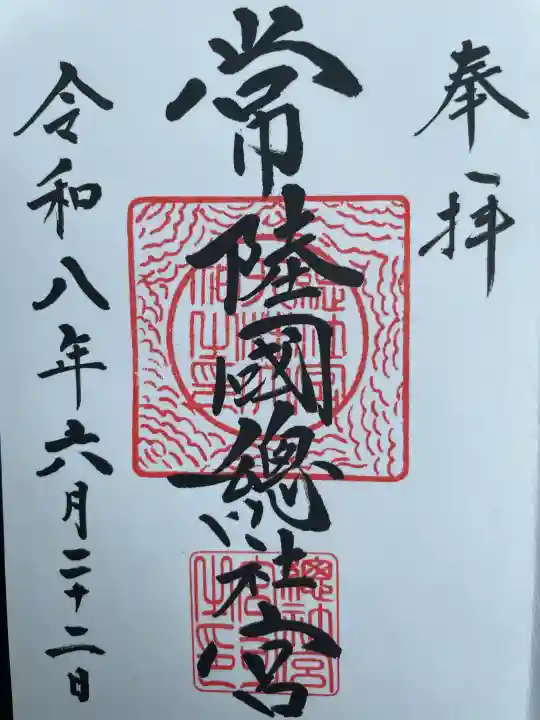 奉拝
常陸國總社宮
令和八年六月二十二日